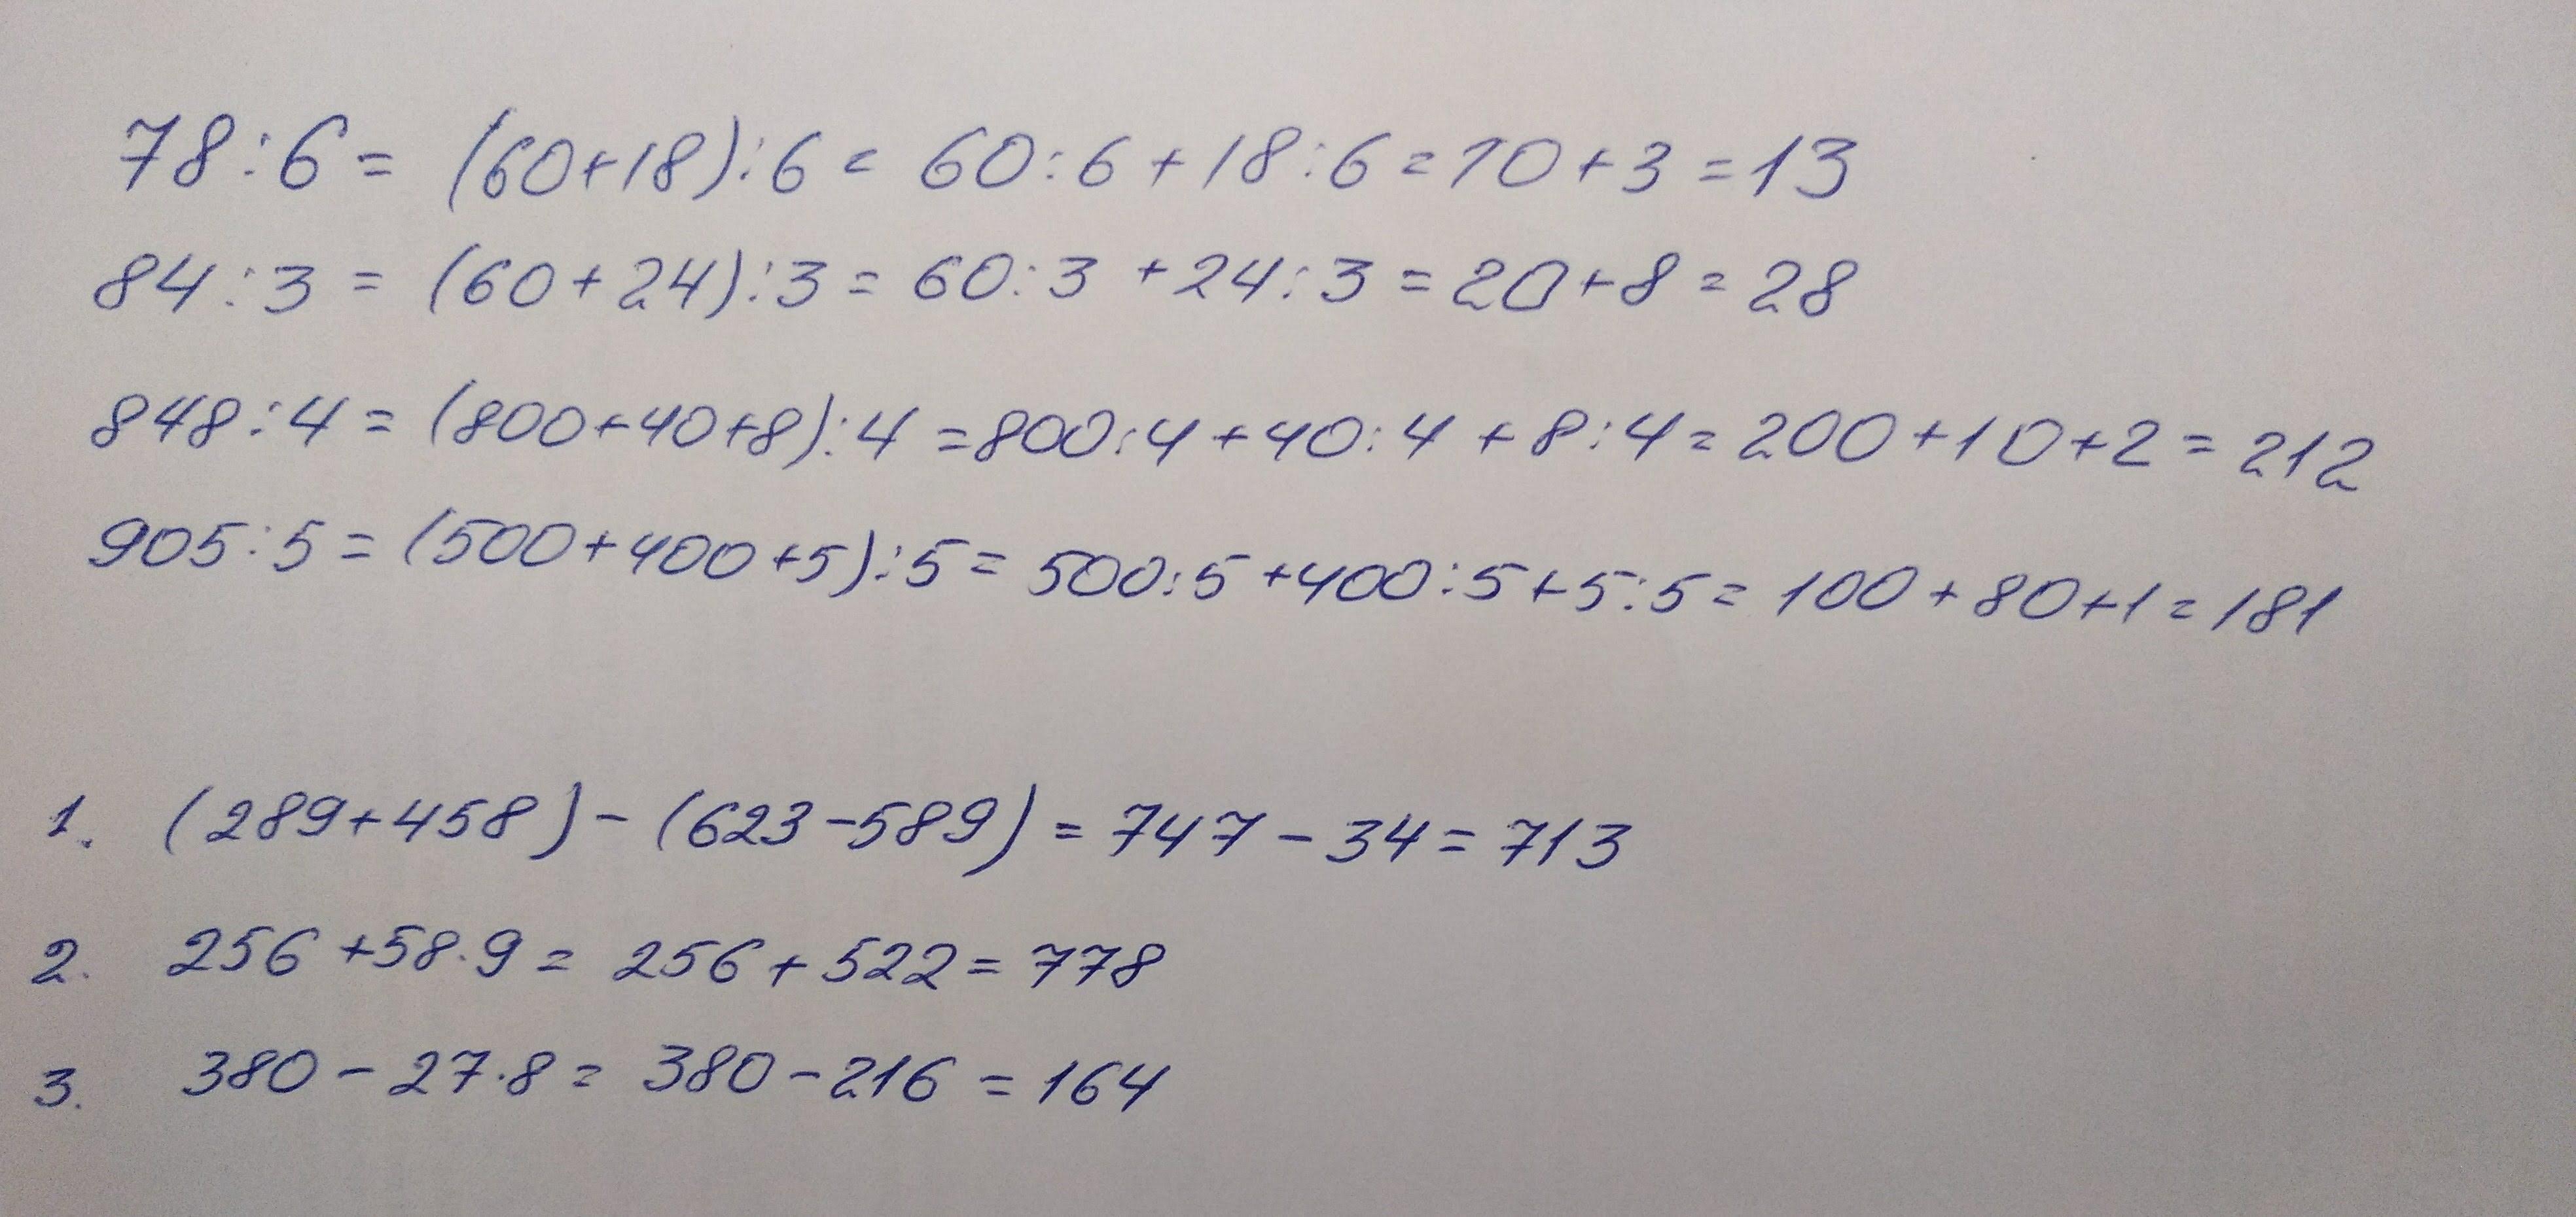 78:6= (60+18):6= 60:6+18:6=10+3=13
84:3= (60+24):3= 60:3+24:3=20+8=28
848:4= (800+40+8):4=800:4+40:4+8:4=200+10+2=212
905:5= (500+400+5):5= 500:5+400:5+5:5= 100+80+1=181
1. (289+458)-(623-589)=747-34=713
2. 256+58·9= 256+522=778
3. 380-27·8= 380-216=164